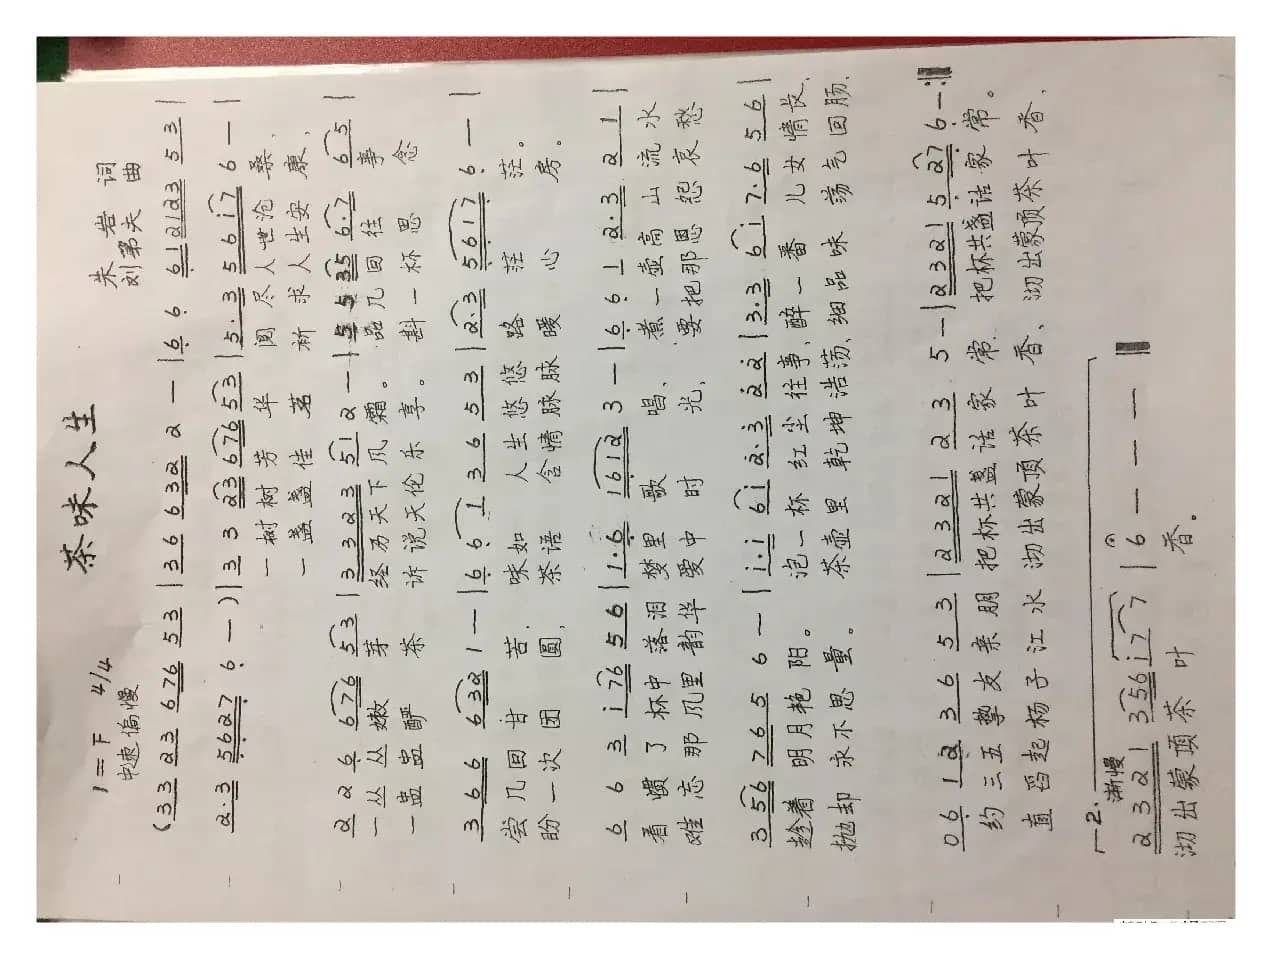 茶味人生
1=F 4/4
中速偏慢
朱岩 词
刘第夫 曲
(3 3 2 3 6 7 6 5 3 | 3 6 6 3 2 2 — | 6 6 6 1 2 1 2 3 5 3 |
2·3 5 6 2 7 6 —) | 3 3 2 3 6 7 6 5 3 | 5·3 5 6 i 7 6 — |
一树树芳华 阅尽人世沧桑,
一盏盏佳茗 祈求人生安康,
2 2 6 6 7 6 5 3 | 3 3 2 3 5 1 2 — | 5 5 3 5 6·7 6 5 |
一丛丛嫩芽 经历天下风霜。 品几回往事
一盅盅酽茶 诉说天伦乐享。 斟一杯思念
3 6 6 6 3 2 1 — | 6 6 1 3 6 5 3 | 2·3 5 6 1 7 6 — |
尝几回甘苦, 味如人生悠悠路茫茫。
盼一次团圆, 茶语含情脉脉暖心房。
6 6 3 i 7 6 5 6 | 1·6 1 6 1 2 3 — | 6 6 1 2·3 2 1 |
看惯了杯中落泪梦里歌唱, 煮一壶高山流水
难忘那风里韵华爱中时光, 要把那恩怨哀愁
3 5 6 7 6 5 6 — | i·i 6 i 2·3 2 2 | 3·3 6 i 7·6 5 6 |
趁着明月艳阳。 泡一杯红尘往事、醉一番儿女情长,
抛却永不思量。 茶壶里乾坤浩荡、细品味荡气回肠,
0 6 1 2 3 6 5 3 | 2 3 2 1 2 3 5 — | 2 3 2 1 5 2 7 6 — :‖
约三五挚友亲朋把杯共盏话家常. 把杯共盏话家常。
直舀起杨子江水沏出蒙顶茶叶香、沏出蒙顶茶叶香,
2.
渐慢
2 3 2 1 3 5 6 i 7 7 | 6 — — — — ‖
沏出蒙顶茶叶香。